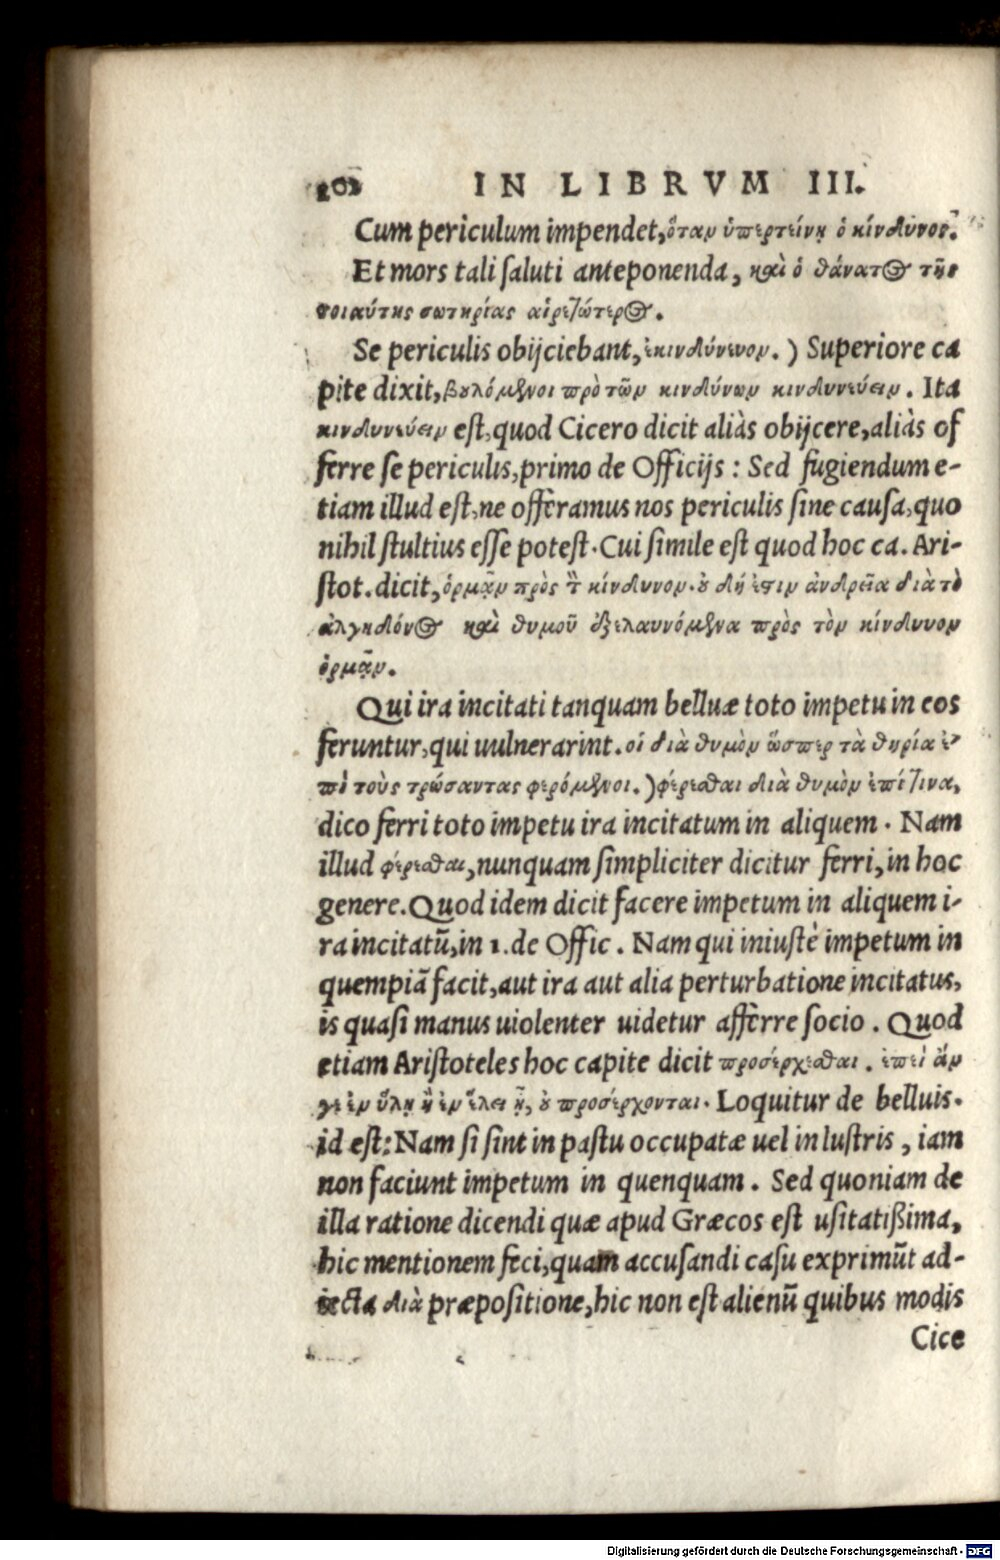 202 IN LIBRVM III.
Cum periculum impendet, ὅταν ὑπερτείνῃ ὁ κίνδυνος.
Et mors tali saluti anteponenda, καὶ ὁ θάνατος τῆς
τοιαύτης σωτηρίας αἱρετώτερος.
Se periculis obijciebant, ἐκινδύνευον.) Superiore ca
pite dixit, βουλόμενοι πρὸ τῶν κινδύνων κινδυνεύειν. Ita
κινδυνεύειν est, quod Cicero dicit aliàs obijcere, aliàs of
ferre se periculis, primo de Officijs: Sed fugiendum e-
tiam illud est, ne offeramus nos periculis sine causa, quo
nihil stultius esse potest. Cui simile est quod hoc ca. Ari-
stot. dicit, ὁρμᾷν πρὸς τὸν κίνδυνον. οὐ δή ἐστιν ἀνδρεῖα διὰ τὸ
ἀλγηδόνος καὶ θυμοῦ ἐξελαυνόμενα πρὸς τὸν κίνδυνον
ὁρμᾷν.
Qui ira incitati tanquam belluæ toto impetu in eos
feruntur, qui uulnerarint. οἱ διὰ θυμὸν ὥσπερ τὰ θηρία ἐ-
πὶ τοὺς τρώσαντας φερόμενοι.) φέρεσθαι διὰ θυμὸν ἐπί τινα,
dico ferri toto impetu ira incitatum in aliquem. Nam
illud φέρεσθαι, nunquam simpliciter dicitur ferri, in hoc
genere. Quod idem dicit facere impetum in aliquem i-
ra incitatũ, in 1. de Offic. Nam qui iniustè impetum in
quempiã facit, aut ira aut alia perturbatione incitatus,
is quasi manus uiolenter uidetur afferre socio. Quod
etiam Aristoteles hoc capite dicit προσέρχεσθαι. ἐπεὶ ἄν
γε ἐν ὕλῃ ἢ ἐν ἕλει ᾖ, οὐ προσέρχονται. Loquitur de belluis.
id est: Nam si sint in pastu occupatæ uel in lustris, iam
non faciunt impetum in quenquam. Sed quoniam de
illa ratione dicendi quæ apud Græcos est usitatißima,
hic mentionem feci, quam accusandi casu exprimũt ad-
iecta διὰ præpositione, hic non est alienũ quibus modis
Cice
Digitalisierung gefördert durch die Deutsche Forschungsgemeinschaft - DFG